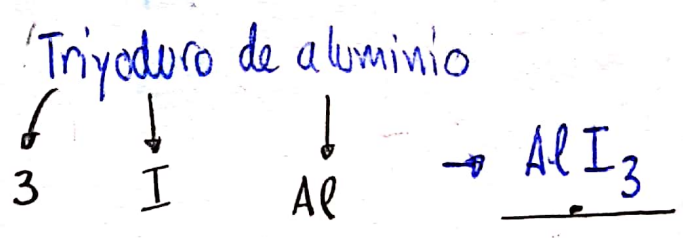 Triyoduro de aluminio
3 I Al → AlI₃